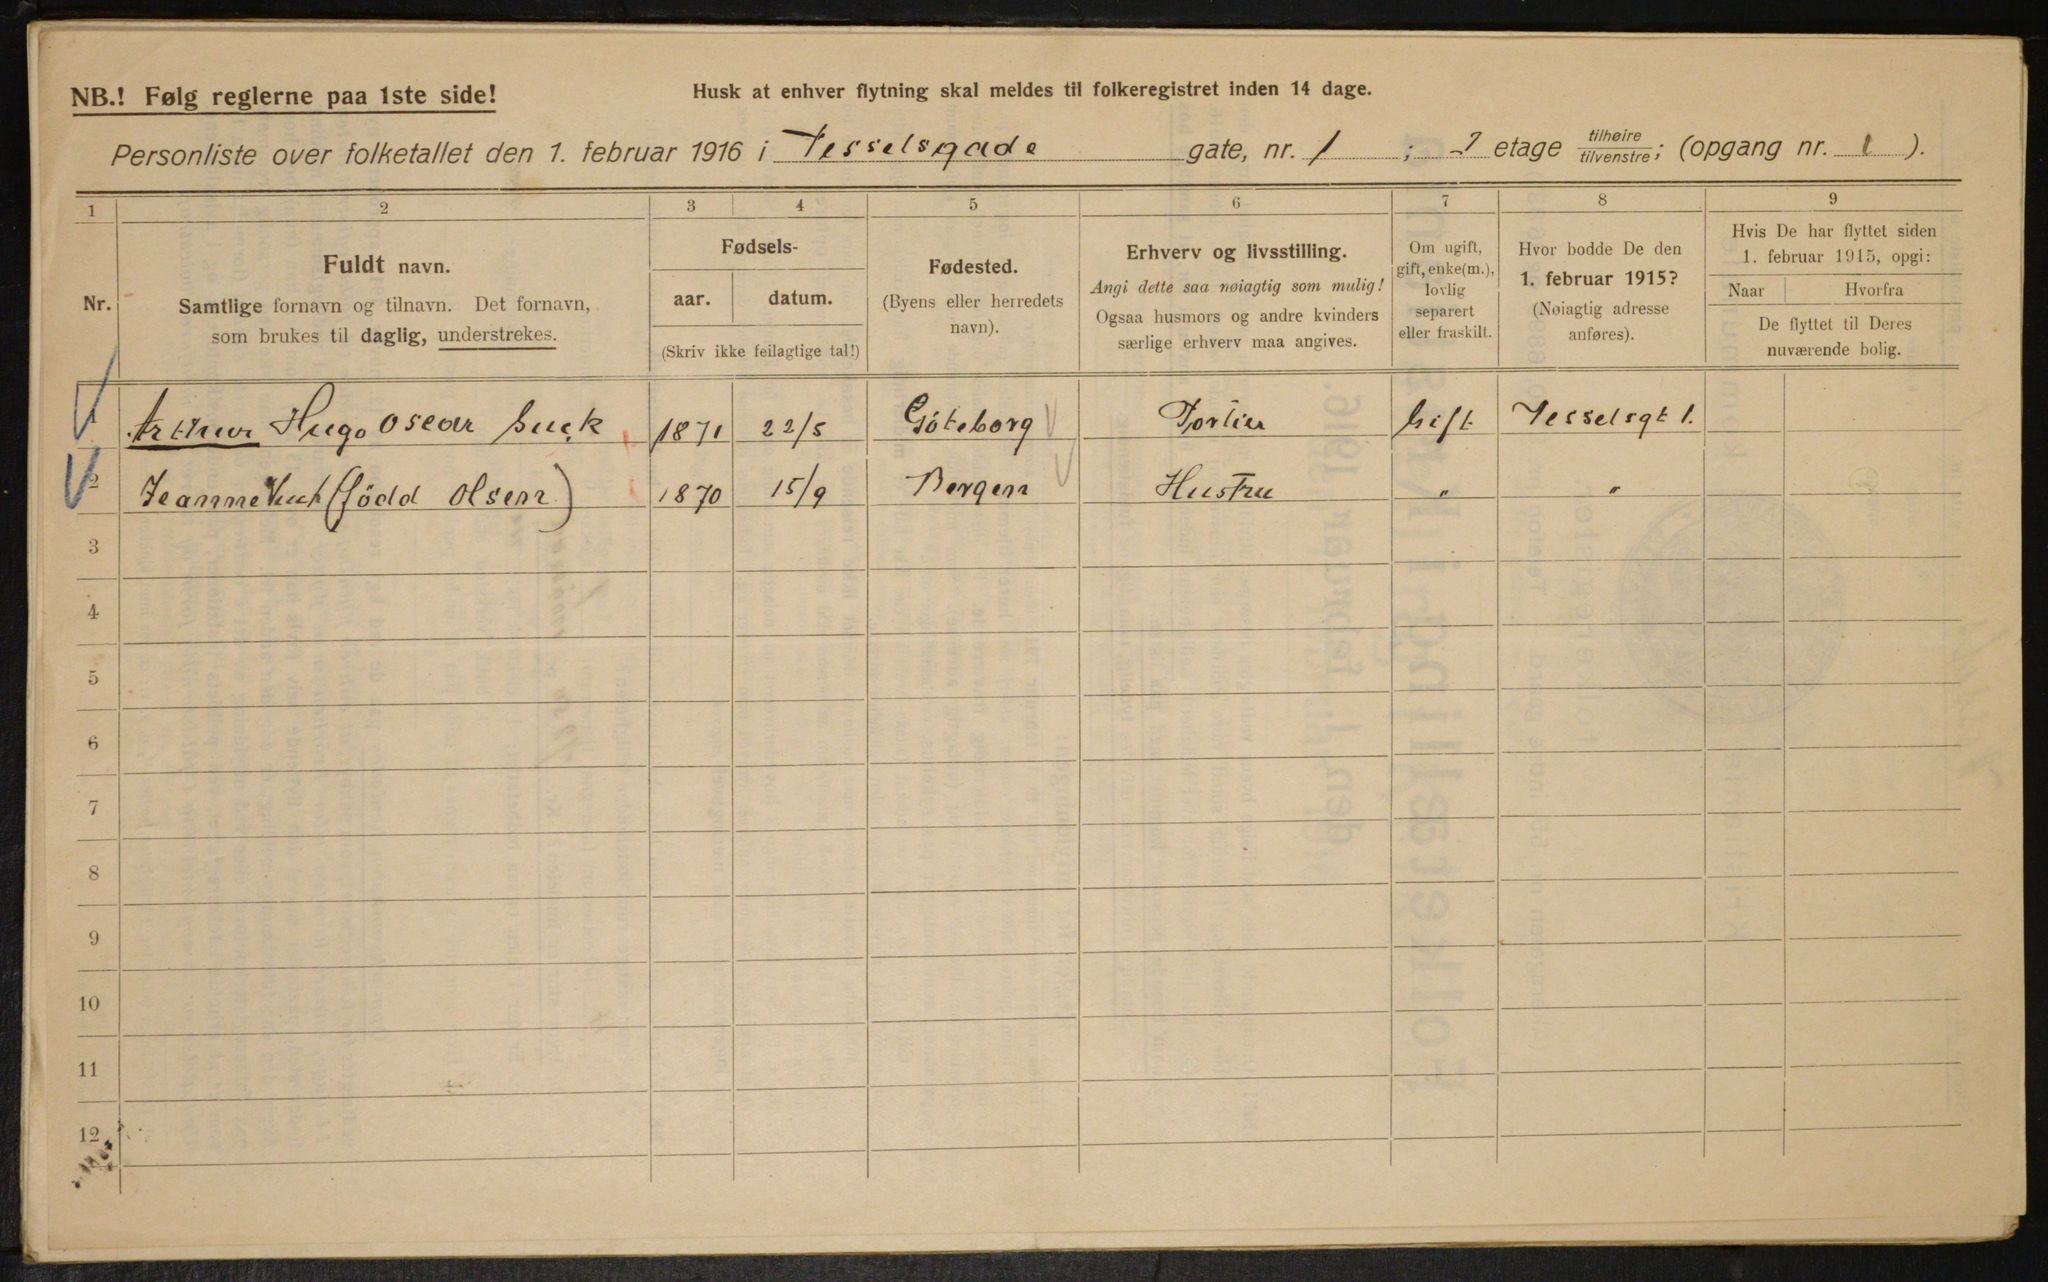 NB.! Følg reglerne paa 1ste side!
Husk at enhver flytning skal meldes til folkeregistret inden 14 dage.
Personliste over folketallet den 1. februar 1916 i Tesselsgade gate, nr. 1 ; etage tilhøire/tilvenstre; (opgang nr. 1 ).
1 2 3 4 5 6 7 8 9
Nr.
Fuldt navn.
Samtlige fornavn og tilnavn. Det fornavn,
som brukes til daglig, understrekes.
Fødsels-
aar. datum.
(Skriv ikke feilagtige tal!)
Fødested.
(Byens eller herredets
navn).
Erhverv og livsstilling.
Angi dette saa nøiagtig som mulig!
Ogsaa husmors og andre kvinders
særlige erhverv maa angives.
Om ugift,
gift, enke(m.),
lovlig
separert
eller fraskilt.
Hvor bodde De den
1. februar 1915?
(Nøiagtig adresse
anføres).
Hvis De har flyttet siden
1. februar 1915, opgi:
Naar Hvorfra
De flyttet til Deres
nuværende bolig.
1 Arthur Hugo Oscar 1871 22/5 Göteborg Portier Gift Tesselsgt 1.
2 (född Olsen) 1870 15/9 Bergen Hustru " "
3
4
5
6
7
8
9
10
11
12